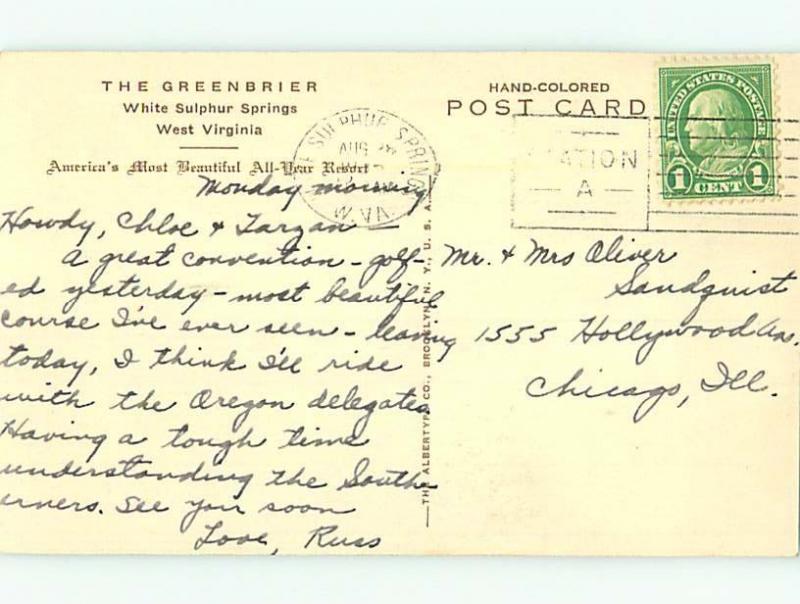 THE GREENBRIER
White Sulphur Springs
West Virginia
America's Most Beautiful All-Year Resort
HAND-COLORED
POST CARD
SULPHUR SPRINGS
AUG
W.VA.
STATION
A
UNITED STATES POSTAGE
1 CENT 1
Monday morning
Howdy, Chloe & Tarzan —
A great convention - golf-
ed yesterday - most beautiful
course I've ever seen - leaving
today, I think I'll ride
with the Oregon delegates
Having a tough time
understanding the South-
erners. See you soon
Love, Russ
THE ALBERTYPE CO., BROOKLYN, N. Y., U. S. A.
Mr. & Mrs Oliver
Sandquist
1555 Hollywood Av.
Chicago, Ill.